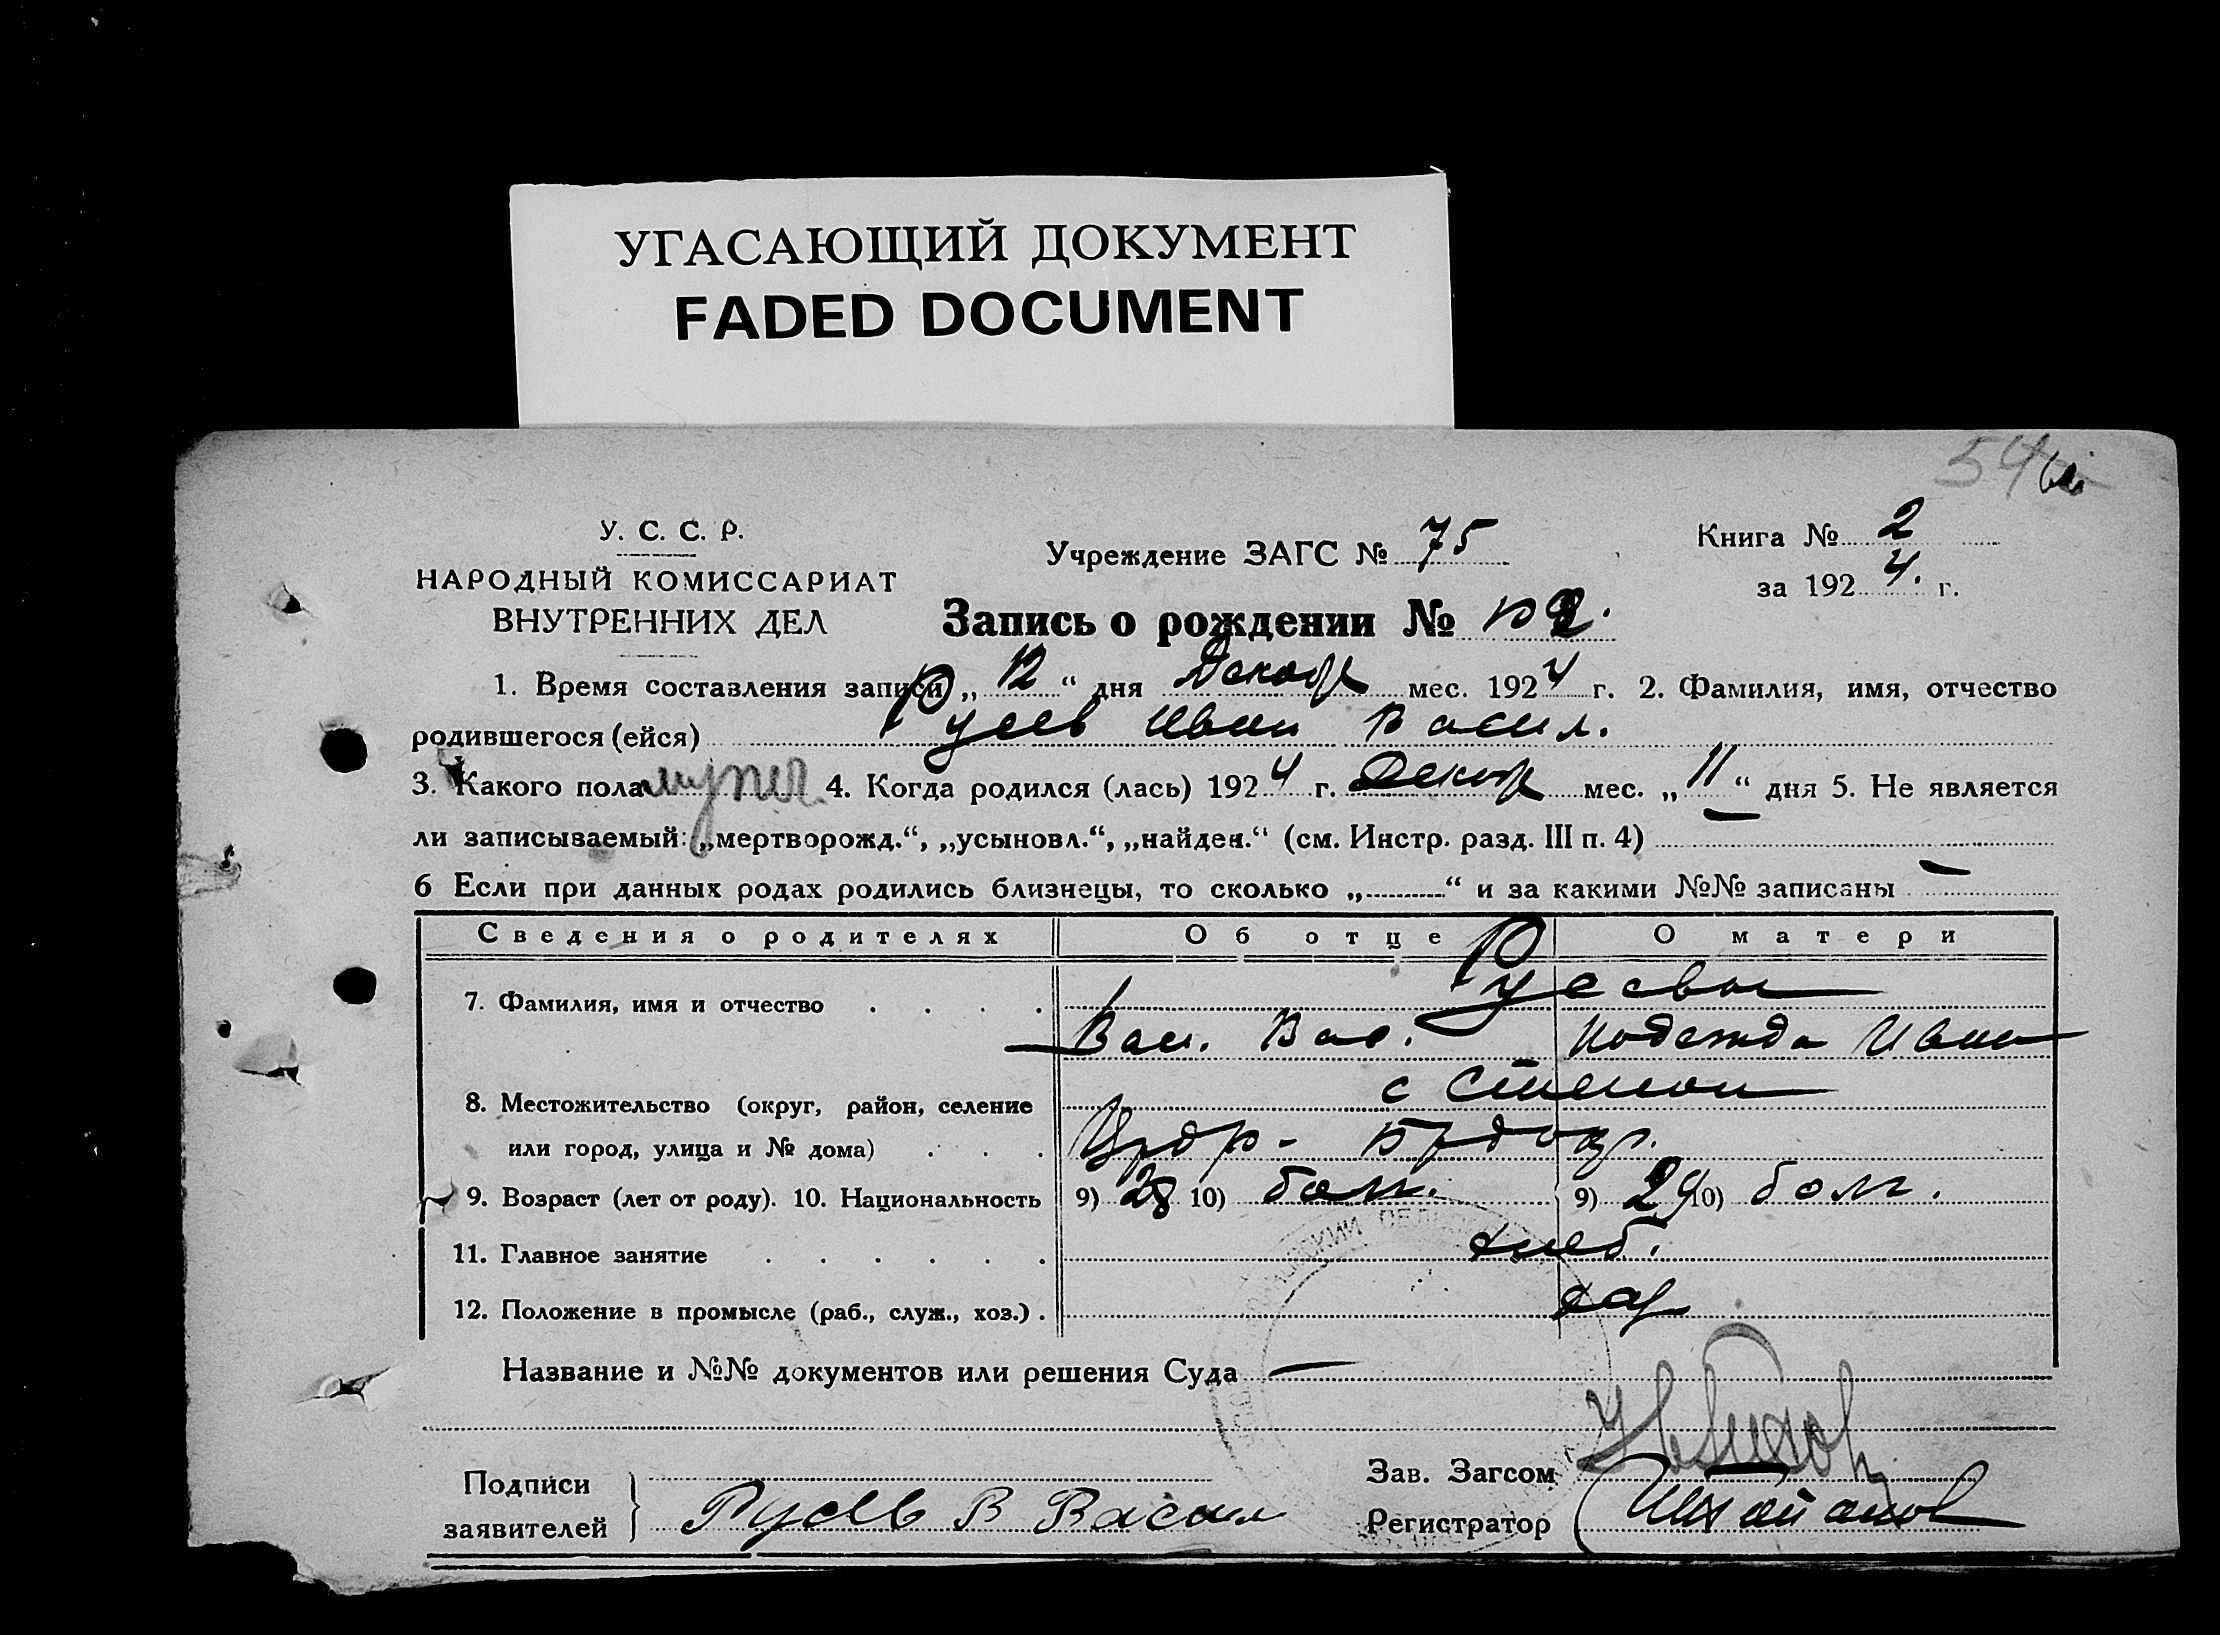 УГАСАЮЩИЙ ДОКУМЕНТ
FADED DOCUMENT
54
У. С. С. Р.
НАРОДНЫЙ КОМИССАРИАТ
ВНУТРЕННИХ ДЕЛ
Учреждение ЗАГС № 75
Книга № 2
за 1924. г.
Запись о рождении №
1. Время составления записи „12“ дня Декабр мес. 1924 г. 2. Фамилия, имя, отчество
родившегося (ейся) Русев Иван Васил.
3. Какого пола мужск. 4. Когда родился (лась) 1924 г. Декабр мес. „11“ дня 5. Не является
ли записываемый: „мертворожд.“, „усыновл.“, „найден.“ (см. Инстр. разд. III п. 4) —
6 Если при данных родах родились близнецы, то сколько „..........“ и за какими №№ записаны —
Сведения о родителях Об отце О матери
7. Фамилия, имя и отчество . . . . Русевы
Вас. Вас. Надежда Иван
8. Местожительство (округ, район, селение
или город, улица и № дома) . . .
9. Возраст (лет от роду). 10. Национальность 9) 28 10) болг. 9) 29 10) болг.
11. Главное занятие . . . . . . хлеб.
12. Положение в промысле (раб., служ., хоз.) .
Название и №№ документов или решения Суда —
Подписи
заявителей Русевъ В Васил
Зав. Загсом
Регистратор